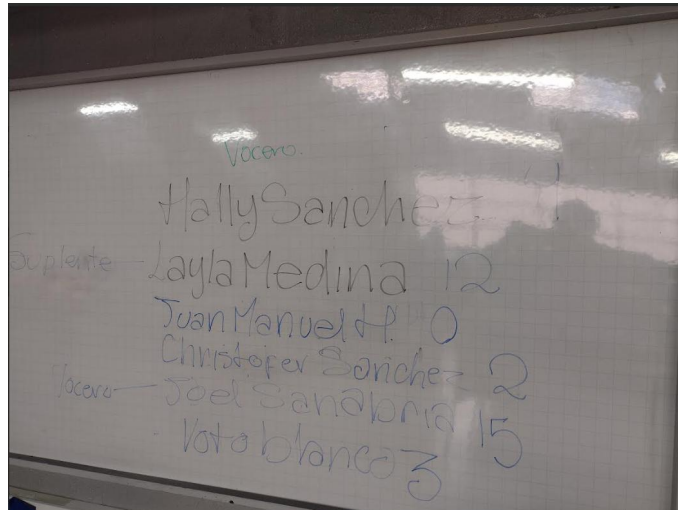 Vocero.
Hally Sanchez 1
Suplente - Layla Medina 12
Juan Manuel H. 0
Christofer Sanchez 2
Vocero - Joel Sanabria 15
Voto blanco 3